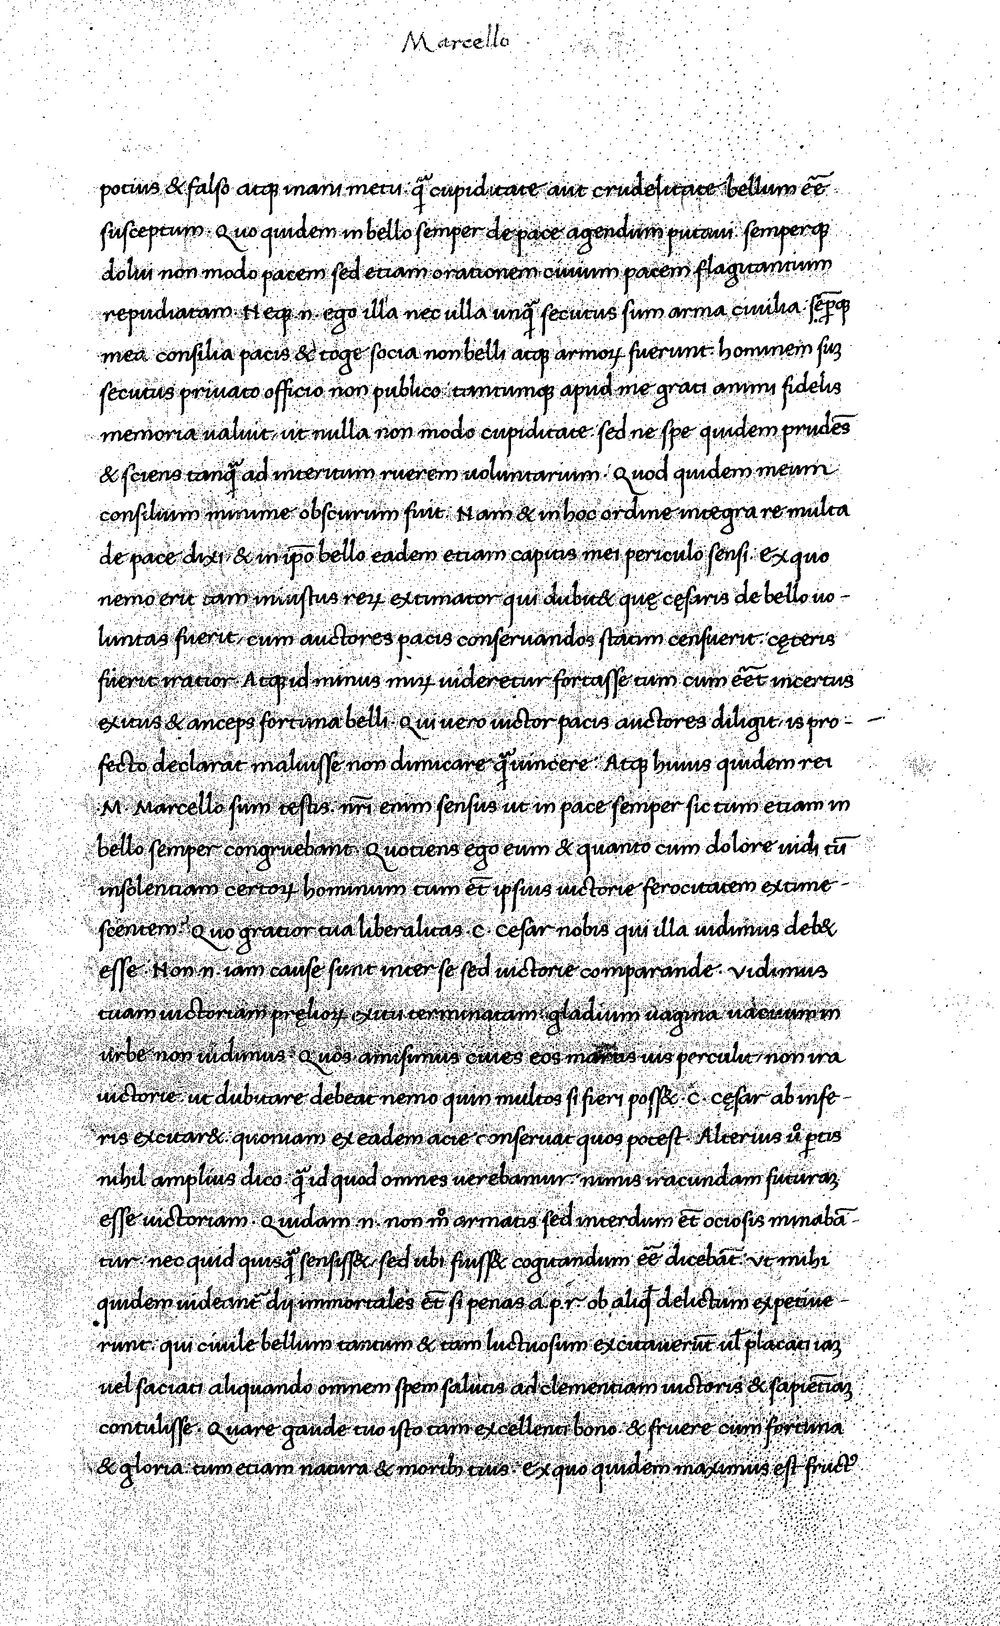 Marcello
potius & falso atqꝫ inani metu. q̃ cupiditate aut crudelitate bellum eē
susceptum. Quo quidem in bello semper de pace agendum putaui. semperqꝫ
dolui non modo pacem sed etiam orationem ciuium pacem flagitantium
repudiatam. Neqꝫ .n. ego illa nec ulla unq̃ secutus sum arma ciuilia. sēp̄qꝫ
mea consilia pacis & toge socia non belli atqꝫ armoꝝ fuerunt. hominem suꝫ
secutus priuato officio non publico. tantumqꝫ apud me grati animi fidelis
memoria ualuit, ut nulla non modo cupiditate. sed ne spe quidem prudēs
& sciens tanq̃ ad interitum ruerem uoluntarium. Quod quidem meum
consilium minime obscurum fuit. Nam & in hoc ordine integra re multa
de pace dixi. & in ip̄o bello eadem etiam capitis mei periculo sensi. Ex quo
nemo erit tam iniustus reꝝ extimator qui dubit& quę cęsaris de bello uo-
luntas fuerit, cum auctores pacis conseruandos statim censuerit. cęteris
fuerit iratior. Atqꝫ id minus miꝝ uideretur fortasse tum cum eēt incertus
exitus & anceps fortuna belli. Qui uero uictor pacis auctores diligit, is pro-
fecto declarat maluisse non dimicare q̃ uincere. Atqꝫ huius quidem rei
M. Marcello sum testis. nr̄i enim sensus ut in pace semper sic tum etiam in
bello semper congruebant. Quotiens ego eum & quanto cum dolore uidi tū
insolentiam certoꝝ hominum tum et̄ ipsius uictorie ferocitatem extime-
scentem. Quo gratior tua liberalitas .C. Cesar nobis qui illa uidimus deb&
esse. Non .n. iam cause sunt inter se sed uictorie comparande. Vidimus
tuam uictoriam pręlioꝝ exitu terminatam. gladium uagina uacuum in
urbe non uidimus. Quos amisimus ciues eos martis uis perculit, non ira
uictorie. ut dubitare debeat nemo quin multos si fieri poss& .C. cęsar ab infe-
ris excitar&. quoniam ex eadem acie conseruat quos potest. Alterius u͛o p̄tis
nihil amplius dico. q̃ id quod omnes uerebamur. nimis iracundam futuraꝫ
esse uictoriam. Quidam .n. non m͛o armatis sed interdum et̄ ociosis minabā-
tur. nec quid quisq̃ sensiss&, sed ubi fuiss& cogitandum eē dicebāt. Ut mihi
quidem uideant̄ dij immortales et̄ si penas a .p.r. ob aliq̄d delictum expetiue-
runt. qui ciuile bellum tantum & tam luctuosum excitauerūt ul̄ placati iaꝫ
uel saciati aliquando omnem spem salutis ad clementiam uictoris & sapiētiaꝫ
contulisse. Quare gaude tuo isto tam excellenti bono. & fruere cum fortuna
& gloria. tum etiam natura & moribꝫ tuis. Ex quo quidem maximus est fructꝰ